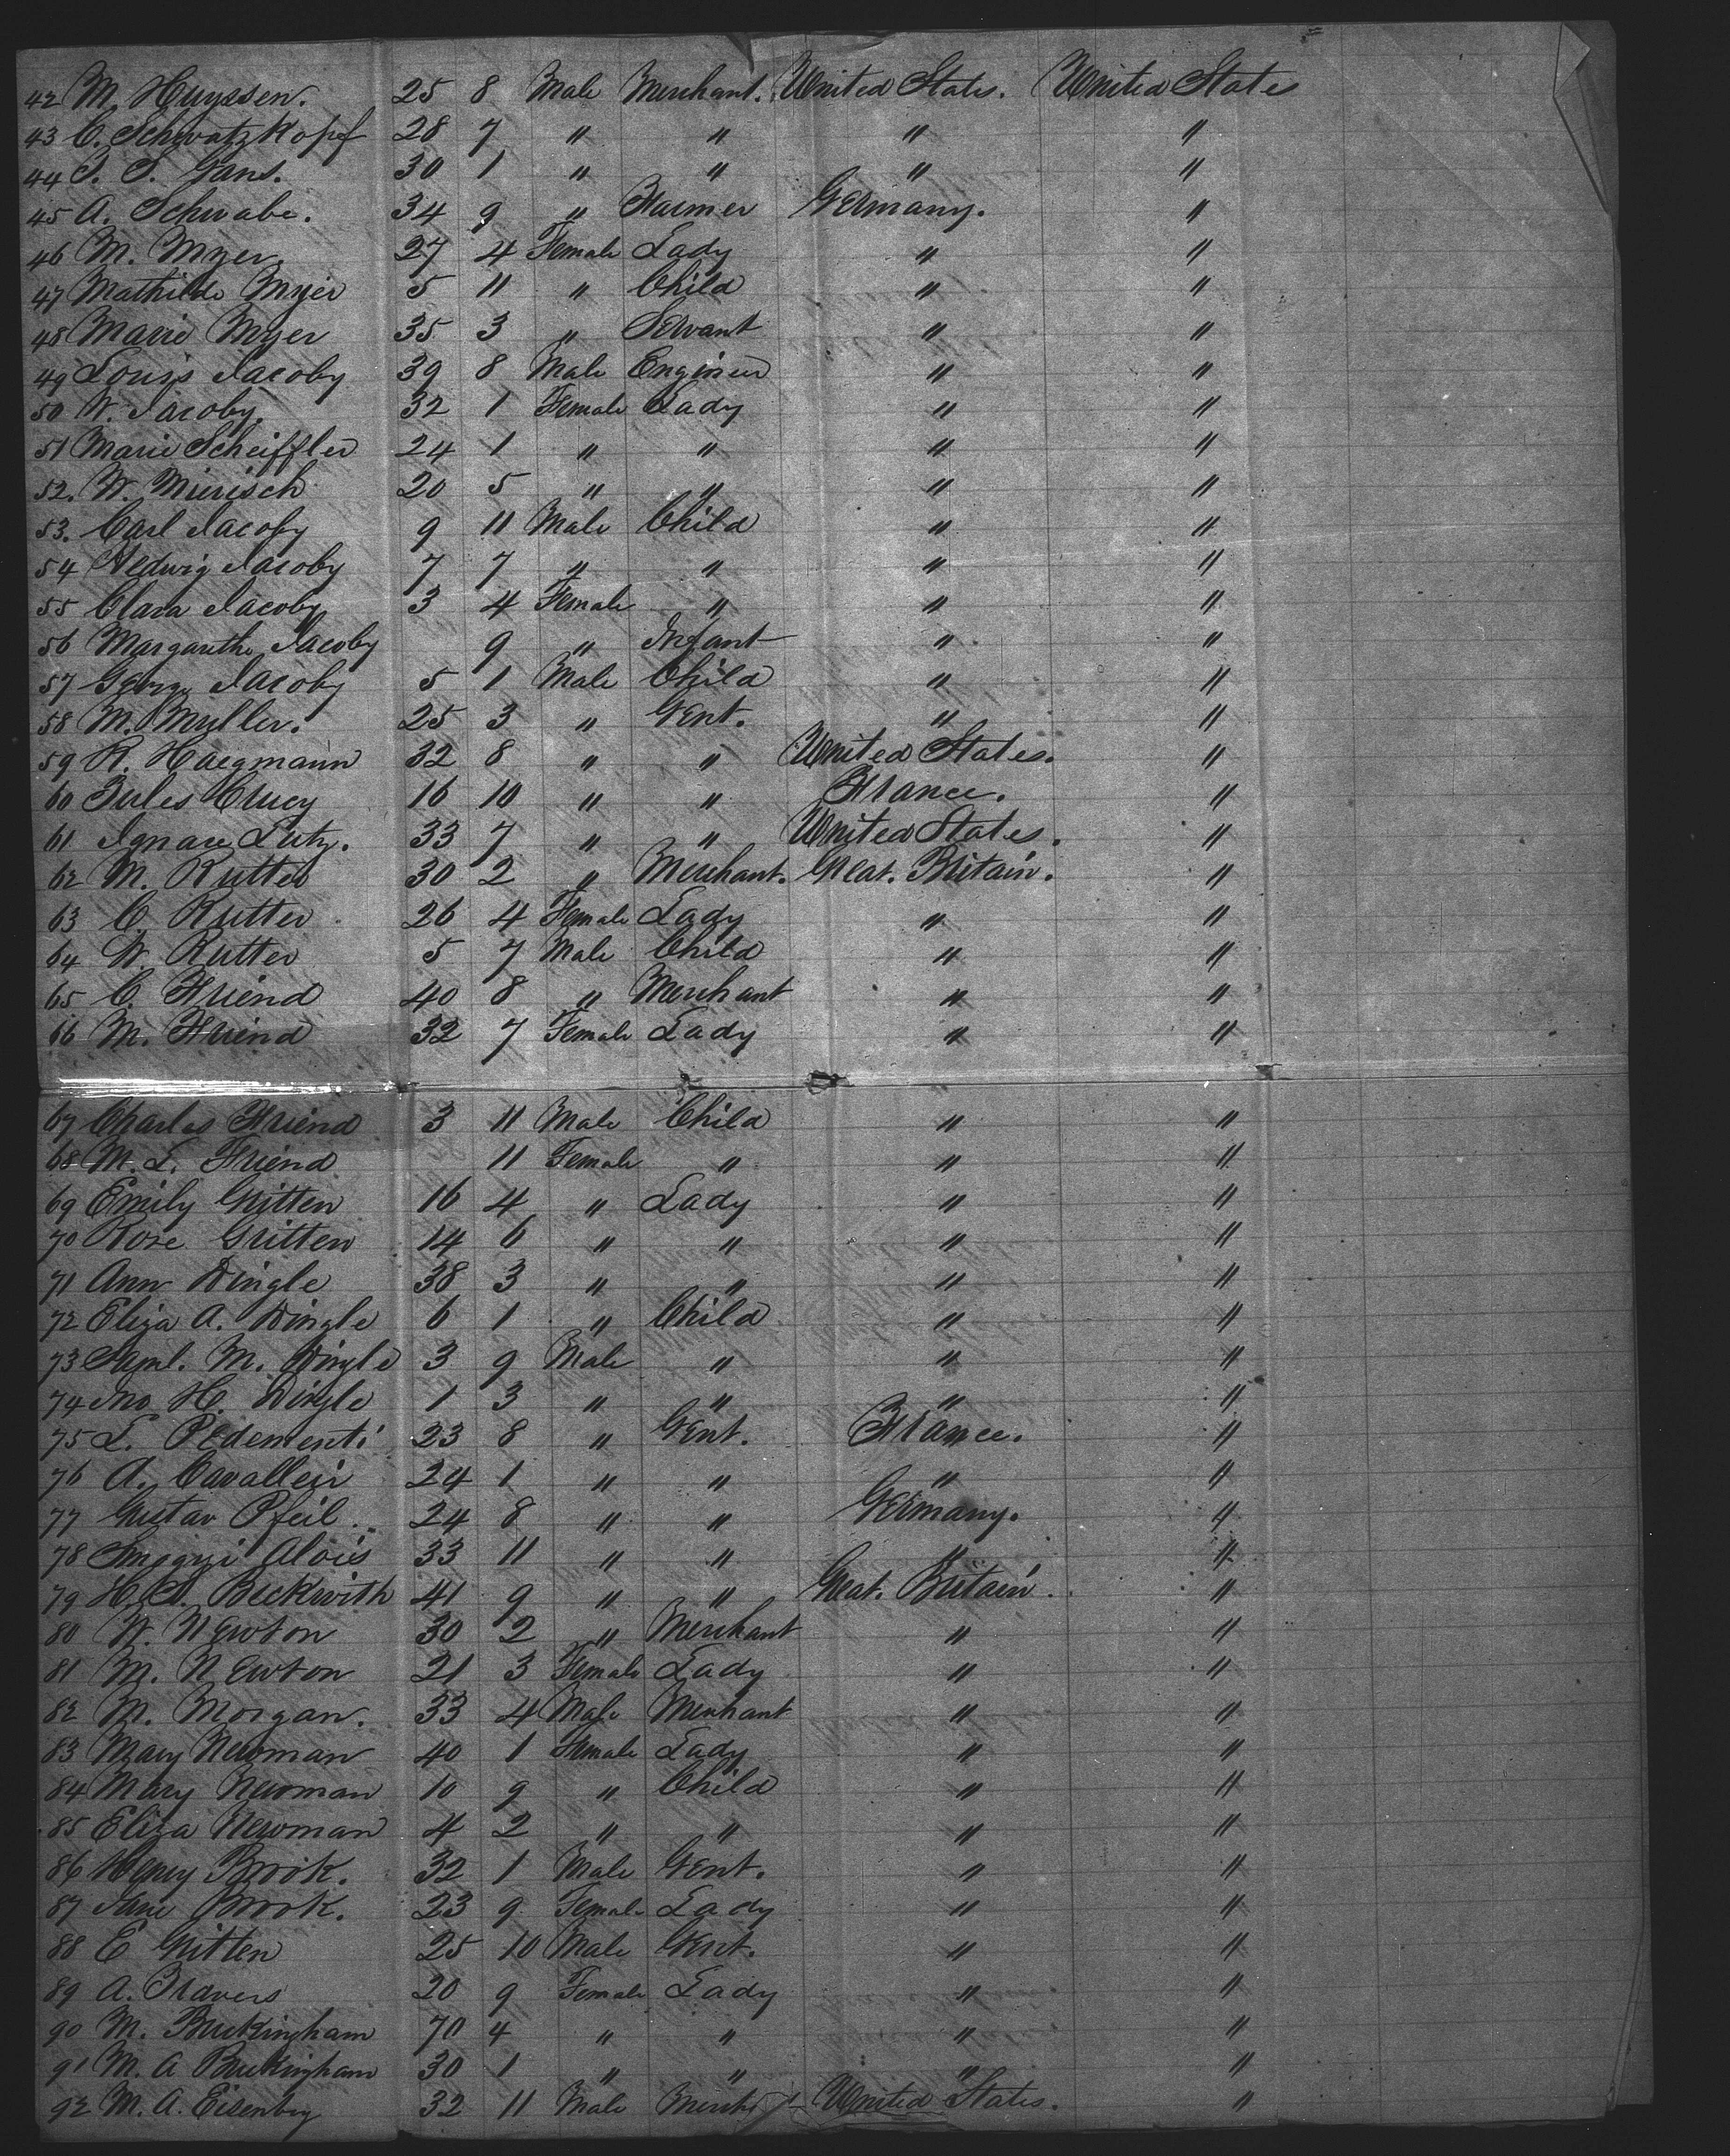 42 M. Huyssen. 25 8 Male Merchant. United States. United States
43 C. Schwatzkopf 28 7 " " " "
44 S. S. Gans. 30 1 " " " "
45 A. Schwabe. 34 9 " Farmer Germany. "
46 M. Myer. 27 4 Female Lady " "
47 Mathilde Myer 5 11 " Child " "
48 Marie Myer 35 3 " Servant " "
49 Louis Jacoby 39 8 Male Engineer " "
50 W. Jacoby. 32 1 Female Lady " "
51 Marie Scheiffler 24 1 " " " "
52. W. Mierisch 20 5 " " " "
53. Carl Jacoby 9 11 Male Child " "
54 Hedwig Jacoby 7 7 " " " "
55 Clara Jacoby 3 4 Female " " "
56 Margarethe Jacoby 9 " Infant " "
57 George Jacoby 5 1 Male Child " "
58 M. Muller. 25 3 " Gent. " "
59 R. Haegmann 32 8 " " United States. "
60 Jules Crucy 16 10 " " France. "
61 Ignace Lutz. 33 7 " " United States. "
62 M. Rutter 30 2 " Merchant. Great. Britain. "
63 C. Rutter 26 4 Female Lady " "
64 W Rutter 5 7 Male Child " "
65 C. Friend 40 8 " Merchant " "
66 M. Friend 32 7 Female Lady " "
67 Charles Friend 3 11 Male Child " "
68 M. L. Friend 11 Female " " "
69 Emily Gritten 16 4 " Lady " "
70 Rose Gritten 14 6 " " " "
71 Ann Dingle 38 3 " " " "
72 Eliza A. Dingle 6 1 " Child " "
73 Saml. M. Dingle 3 9 Male " " "
74 Jno H. Dingle 1 3 " " " "
75 L. Pedementi 23 8 " Gent. France. "
76 A. Cavalleir 24 1 " " " "
77 Gustav Pfeil 24 8 " " Germany. "
78 Smogyi Alois 33 11 " " " "
79 H. S. Beckwith 41 9 " " Great. Britain. "
80 W. Newton 30 2 " Merchant " "
81 M. Newton 21 3 Female Lady " "
82 M. Morgan. 33 4 Male Merchant " "
83 Mary Newman 40 1 Female Lady " "
84 Mary Newman 10 9 " Child " "
85 Eliza Newman 4 2 " " " "
86 Henry Brook. 32 1 Male Gent. " "
87 Jane Brook. 23 9 Female Lady " "
88 E Gritten 25 10 Male Gent. " "
89 A. Travers 20 9 Female Lady " "
90 M. Buckingham 70 4 " " " "
91 M. A Buckingham 30 1 " " " "
92 M. A. Eisenberg 32 11 Male United States. "